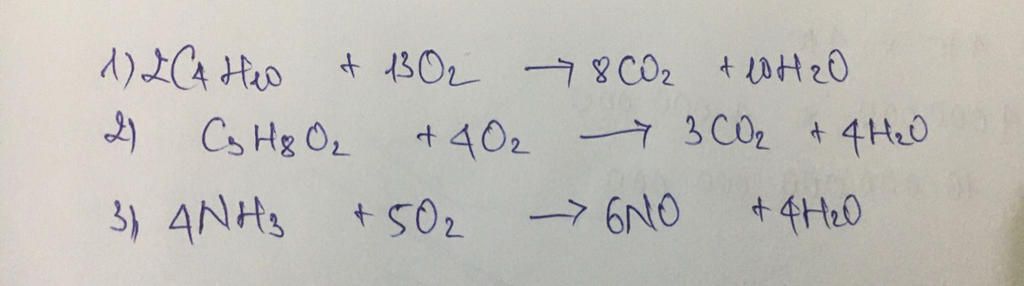 1) 2C4H10 + 13O2 → 8CO2 + 10H2O
2) C3H8O2 + 4O2 → 3CO2 + 4H2O
3) 4NH3 + 5O2 → 6NO + 4H2O